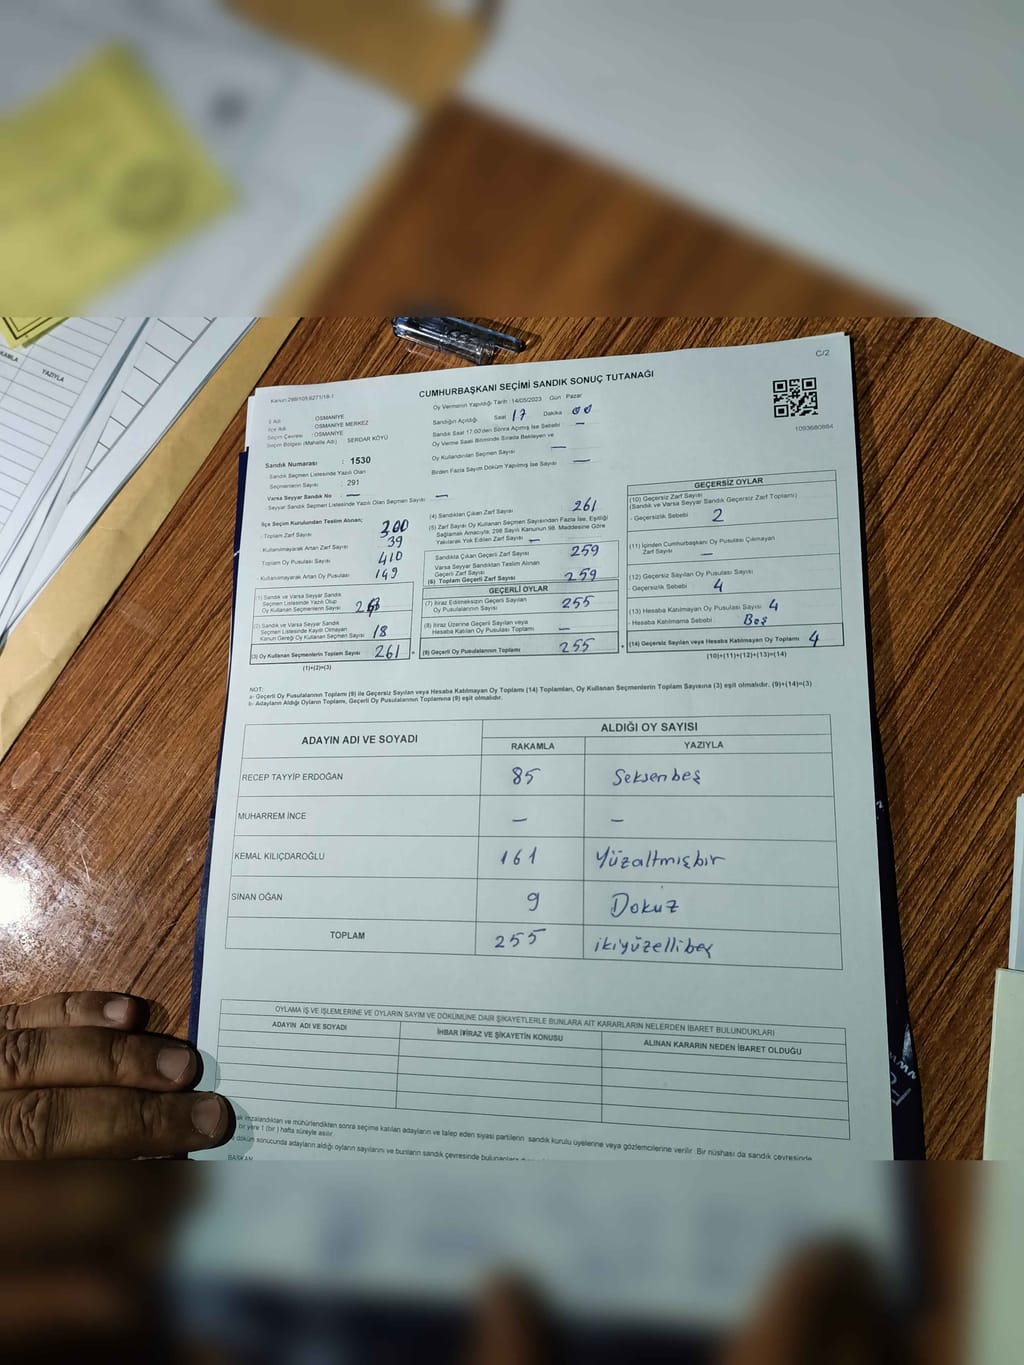 KAMLA
YAZIYLA
C/2
Kanun:298/105,6271/18-1
CUMHURBAŞKANI SEÇİMİ SANDIK SONUÇ TUTANAĞI
1093680884
İl Adı : OSMANİYE
İlçe Adı : OSMANİYE MERKEZ
Seçim Çevresi : OSMANİYE
Seçim Bölgesi (Mahalle Adı) SERDAR KÖYÜ
Sandık Numarası : 1530
Sandık Seçmen Listesinde Yazılı Olan
Seçmenlerin Sayısı : 291
Varsa Seyyar Sandık No : —
Seyyar Sandık Seçmen Listesinde Yazılı Olan Seçmen Sayısı —
Oy Vermenin Yapıldığı Tarih :14/05/2023 Gün Pazar
Sandığın Açıldığı Saat 17 Dakika 00
Sandık Saat 17:00'den Sonra Açılmış İse Sebebi —
Oy Verme Saati Bitiminde Sırada Bekleyen ve
Oy Kullandırılan Seçmen Sayısı —
Birden Fazla Sayım Döküm Yapılmış İse Sayısı —
İlçe Seçim Kurulundan Teslim Alınan;
- Toplam Zarf Sayısı 300
- Kullanılmayarak Artan Zarf Sayısı 39
- Toplam Oy Pusulası Sayısı 410
- Kullanılmayarak Artan Oy Pusulası 149
(1) Sandık ve Varsa Seyyar Sandık
Seçmen Listesinde Yazılı Olup
Oy Kullanan Seçmenlerin Sayısı
(2) Sandık ve Varsa Seyyar Sandık
Seçmen Listesinde Kayıtlı Olmayan
Kanun Gereği Oy Kullanan Seçmen Sayısı 18
(3) Oy Kullanan Seçmenlerin Toplam Sayısı 261
(1)+(2)=(3)
(4) Sandıktan Çıkan Zarf Sayısı 261
(5) Zarf Sayısı Oy Kullanan Seçmen Sayısından Fazla İse, Eşitliği
Sağlamak Amacıyla; 298 Sayılı Kanunun 98. Maddesine Göre
Yakılarak Yok Edilen Zarf Sayısı —
Sandıkta Çıkan Geçerli Zarf Sayısı 259
Varsa Seyyar Sandıktan Teslim Alınan
Geçerli Zarf Sayısı
(6) Toplam Geçerli Zarf Sayısı 259
GEÇERLİ OYLAR
(7) İtiraz Edilmeksizin Geçerli Sayılan
Oy Pusulalarının Sayısı 255
(8) İtiraz Üzerine Geçerli Sayılan veya
Hesaba Katılan Oy Pusulaları Toplamı —
(9) Geçerli Oy Pusulalarının Toplamı 255
GEÇERSİZ OYLAR
(10) Geçersiz Zarf Sayısı
(Sandık ve Varsa Seyyar Sandık Geçersiz Zarf Toplamı)
- Geçersizlik Sebebi 2
(11) İçinden Cumhurbaşkanı Oy Pusulası Çıkmayan
Zarf Sayısı —
(12) Geçersiz Sayılan Oy Pusulası Sayısı
- Geçersizlik Sebebi 4
(13) Hesaba Katılmayan Oy Pusulası Sayısı 4
- Hesaba Katılmama Sebebi Boş
(14) Geçersiz Sayılan veya Hesaba Katılmayan Oy Toplamı 4
(10)+(11)+(12)+(13)=(14)
NOT:
a- Geçerli Oy Pusulalarının Toplamı (9) ile Geçersiz Sayılan veya Hesaba Katılmayan Oy Toplamı (14) Toplamları, Oy Kullanan Seçmenlerin Toplam Sayısına (3) eşit olmalıdır. (9)+(14)=(3)
b- Adayların Aldığı Oyların Toplamı, Geçerli Oy Pusulalarının Toplamına (9) eşit olmalıdır.
ADAYIN ADI VE SOYADI
ALDIĞI OY SAYISI
RAKAMLA YAZIYLA
RECEP TAYYİP ERDOĞAN 85 Seksenbeş
MUHARREM İNCE — —
KEMAL KILIÇDAROĞLU 161 Yüzaltmışbir
SİNAN OĞAN 9 Dokuz
TOPLAM 255 ikiyüzellibeş
OYLAMA İŞ VE İŞLEMLERİNE VE OYLARIN SAYIM VE DÖKÜMÜNE DAİR ŞİKAYETLERLE BUNLARA AİT KARARLARIN NELERDEN İBARET BULUNDUKLARI
ADAYIN ADI VE SOYADI İHBAR İTİRAZ VE ŞİKAYETİN KONUSU ALINAN KARARIN NEDEN İBARET OLDUĞU
imzalandıktan ve mühürlendikten sonra seçime katılan adayların ve talep eden siyasi partilerin sandık kurulu üyelerine veya gözlemcilerine verilir. Bir nüshası da sandık çevresinde
bir yere 1 (bir) hafta süreyle asılır.
döküm sonucunda adayların aldığı oyların sayılarını ve bunların sandık çevresinde
BAŞKAN